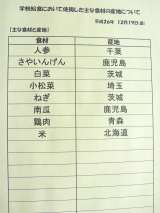 学校給食において使用した主な食材の産地について
平成26年 12月19日(金)
【主な食材と産地】
食材 産地
人参 千葉
さやいんげん 鹿児島
白菜 茨城
小松菜 埼玉
ねぎ 茨城
南瓜 鹿児島
鶏肉 青森
米 北海道